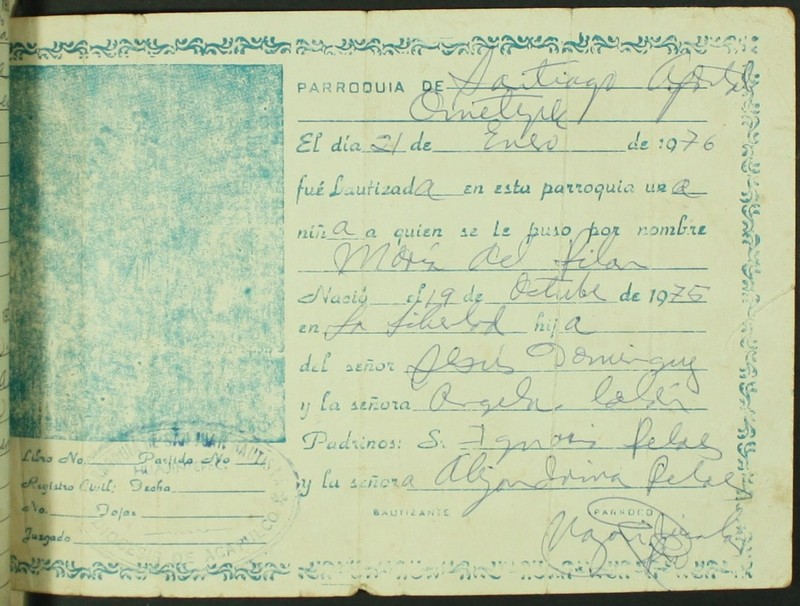 PARROQUIA DE Santiago Apstol
Ometepec
El día 21 de Enero de 1976
fué bautizada en esta parroquia una
niña a quien se le puso por nombre
María del Pilar
Nació el 19 de Octubre de 1975
en La Libertad hija
del señor Jesús Domínguez
y la señora Angela
Padrinos: Sr Ignacio Pelaez
y la señora Alejandrina Pelaez
BAUTIZANTE PARROCO
Libro No. Partida No
Registro Civil: Fecha
No. Fojas
Juzgado
DE ACAPULCO